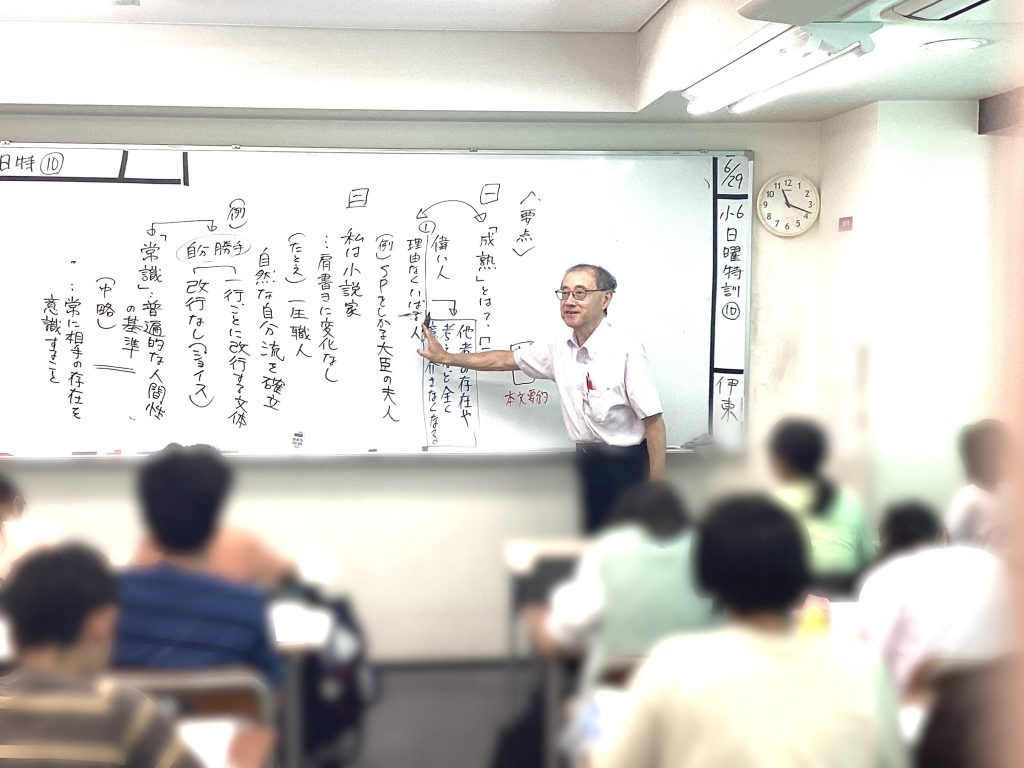 6/29
小6
日曜特訓⑩
伊東
〈要点〉
一
「成熟」とは?
本文要約
他者の存在や
偉い人
①
理由なくいばる人
(例)SPをしかる大臣の夫人
二
私は小説家
…肩書きに変化なし
(たとえ)一圧職人
自然な自分流を確立
(例)
自分勝手
一行ごとに改行する文体
改行なし(ジョイス)
「常識」…普遍的な人間性
の基準
(中略)
…常に相手の存在を
意識すること
日特⑩
12
1
2
3
4
5
6
7
8
9
10
11